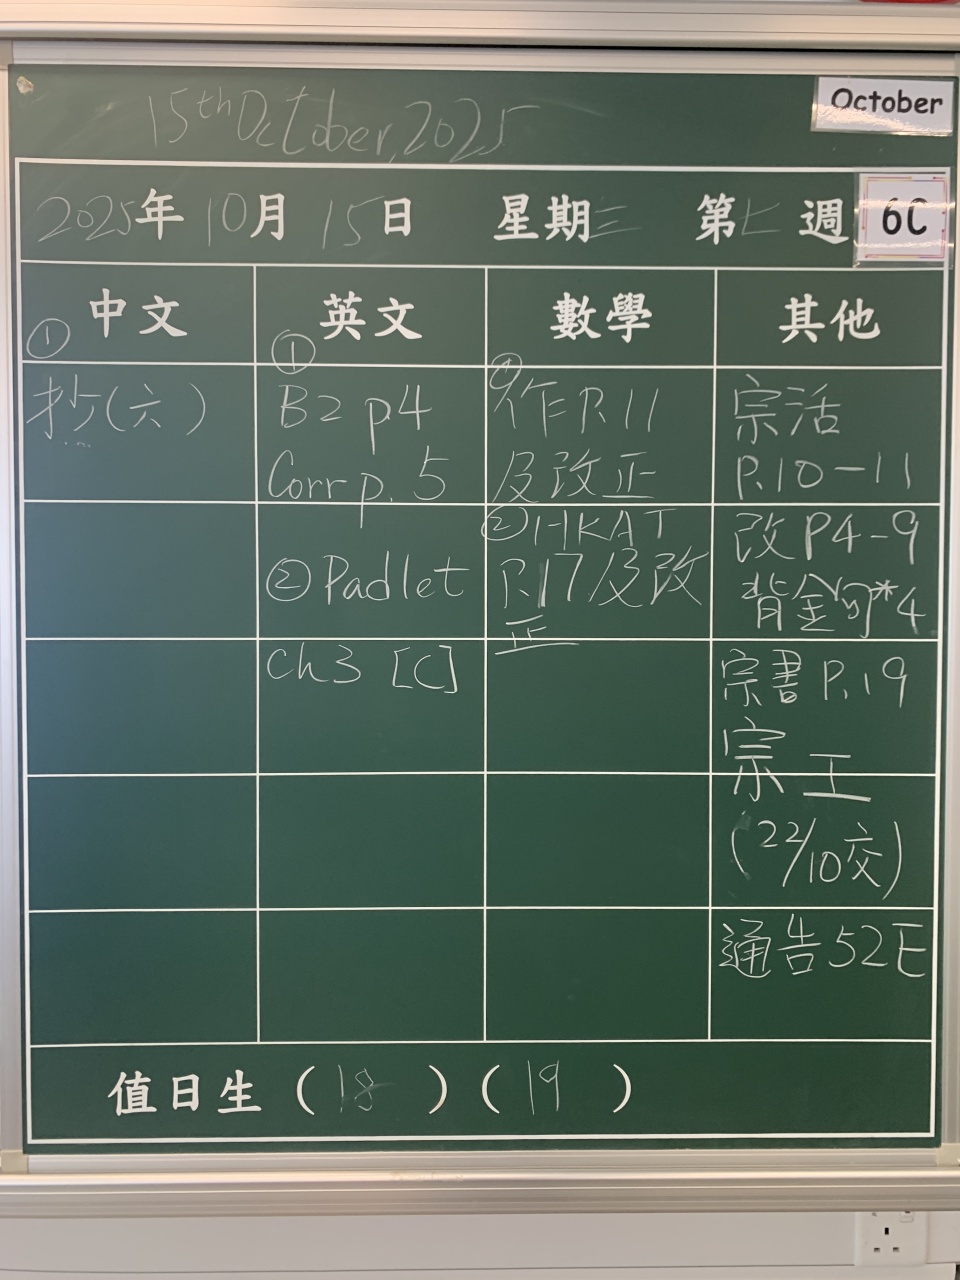 15th October, 2025
October
2025年10月15日 星期三 第七週 6C
中文 英文 數學 其他
①
抄(六)
①
B2 p4
Corr p. 5
②Padlet
Ch3 [C]
①作P.11
及改正
②HKAT
P.17及改
正
宗活
P.10-11
改P4-9
背金句*4
宗書P.19
宗工
(22/10交)
通告52E
值日生(18)(19)